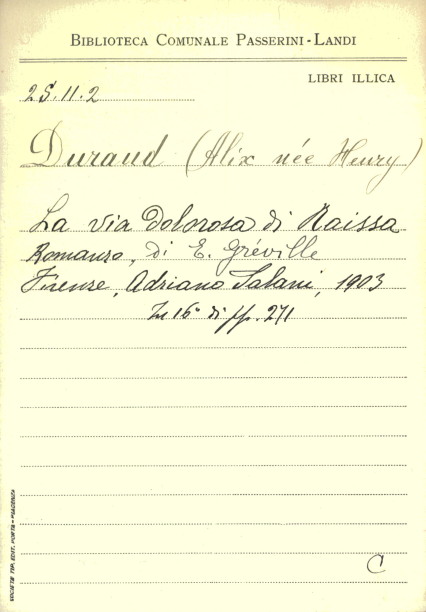 BIBLIOTECA COMUNALE PASSERINI-LANDI
LIBRI ILLICA
2S.11.2
Durand (Alix née Henry)
La via dolorosa di Raissa
Romanzo, di E. Gréville
Firenze, Adriano Salani, 1903
In 16° di pp. 271
SOCIETÀ TIP. EDIT. PORTA - PIACENZA
C